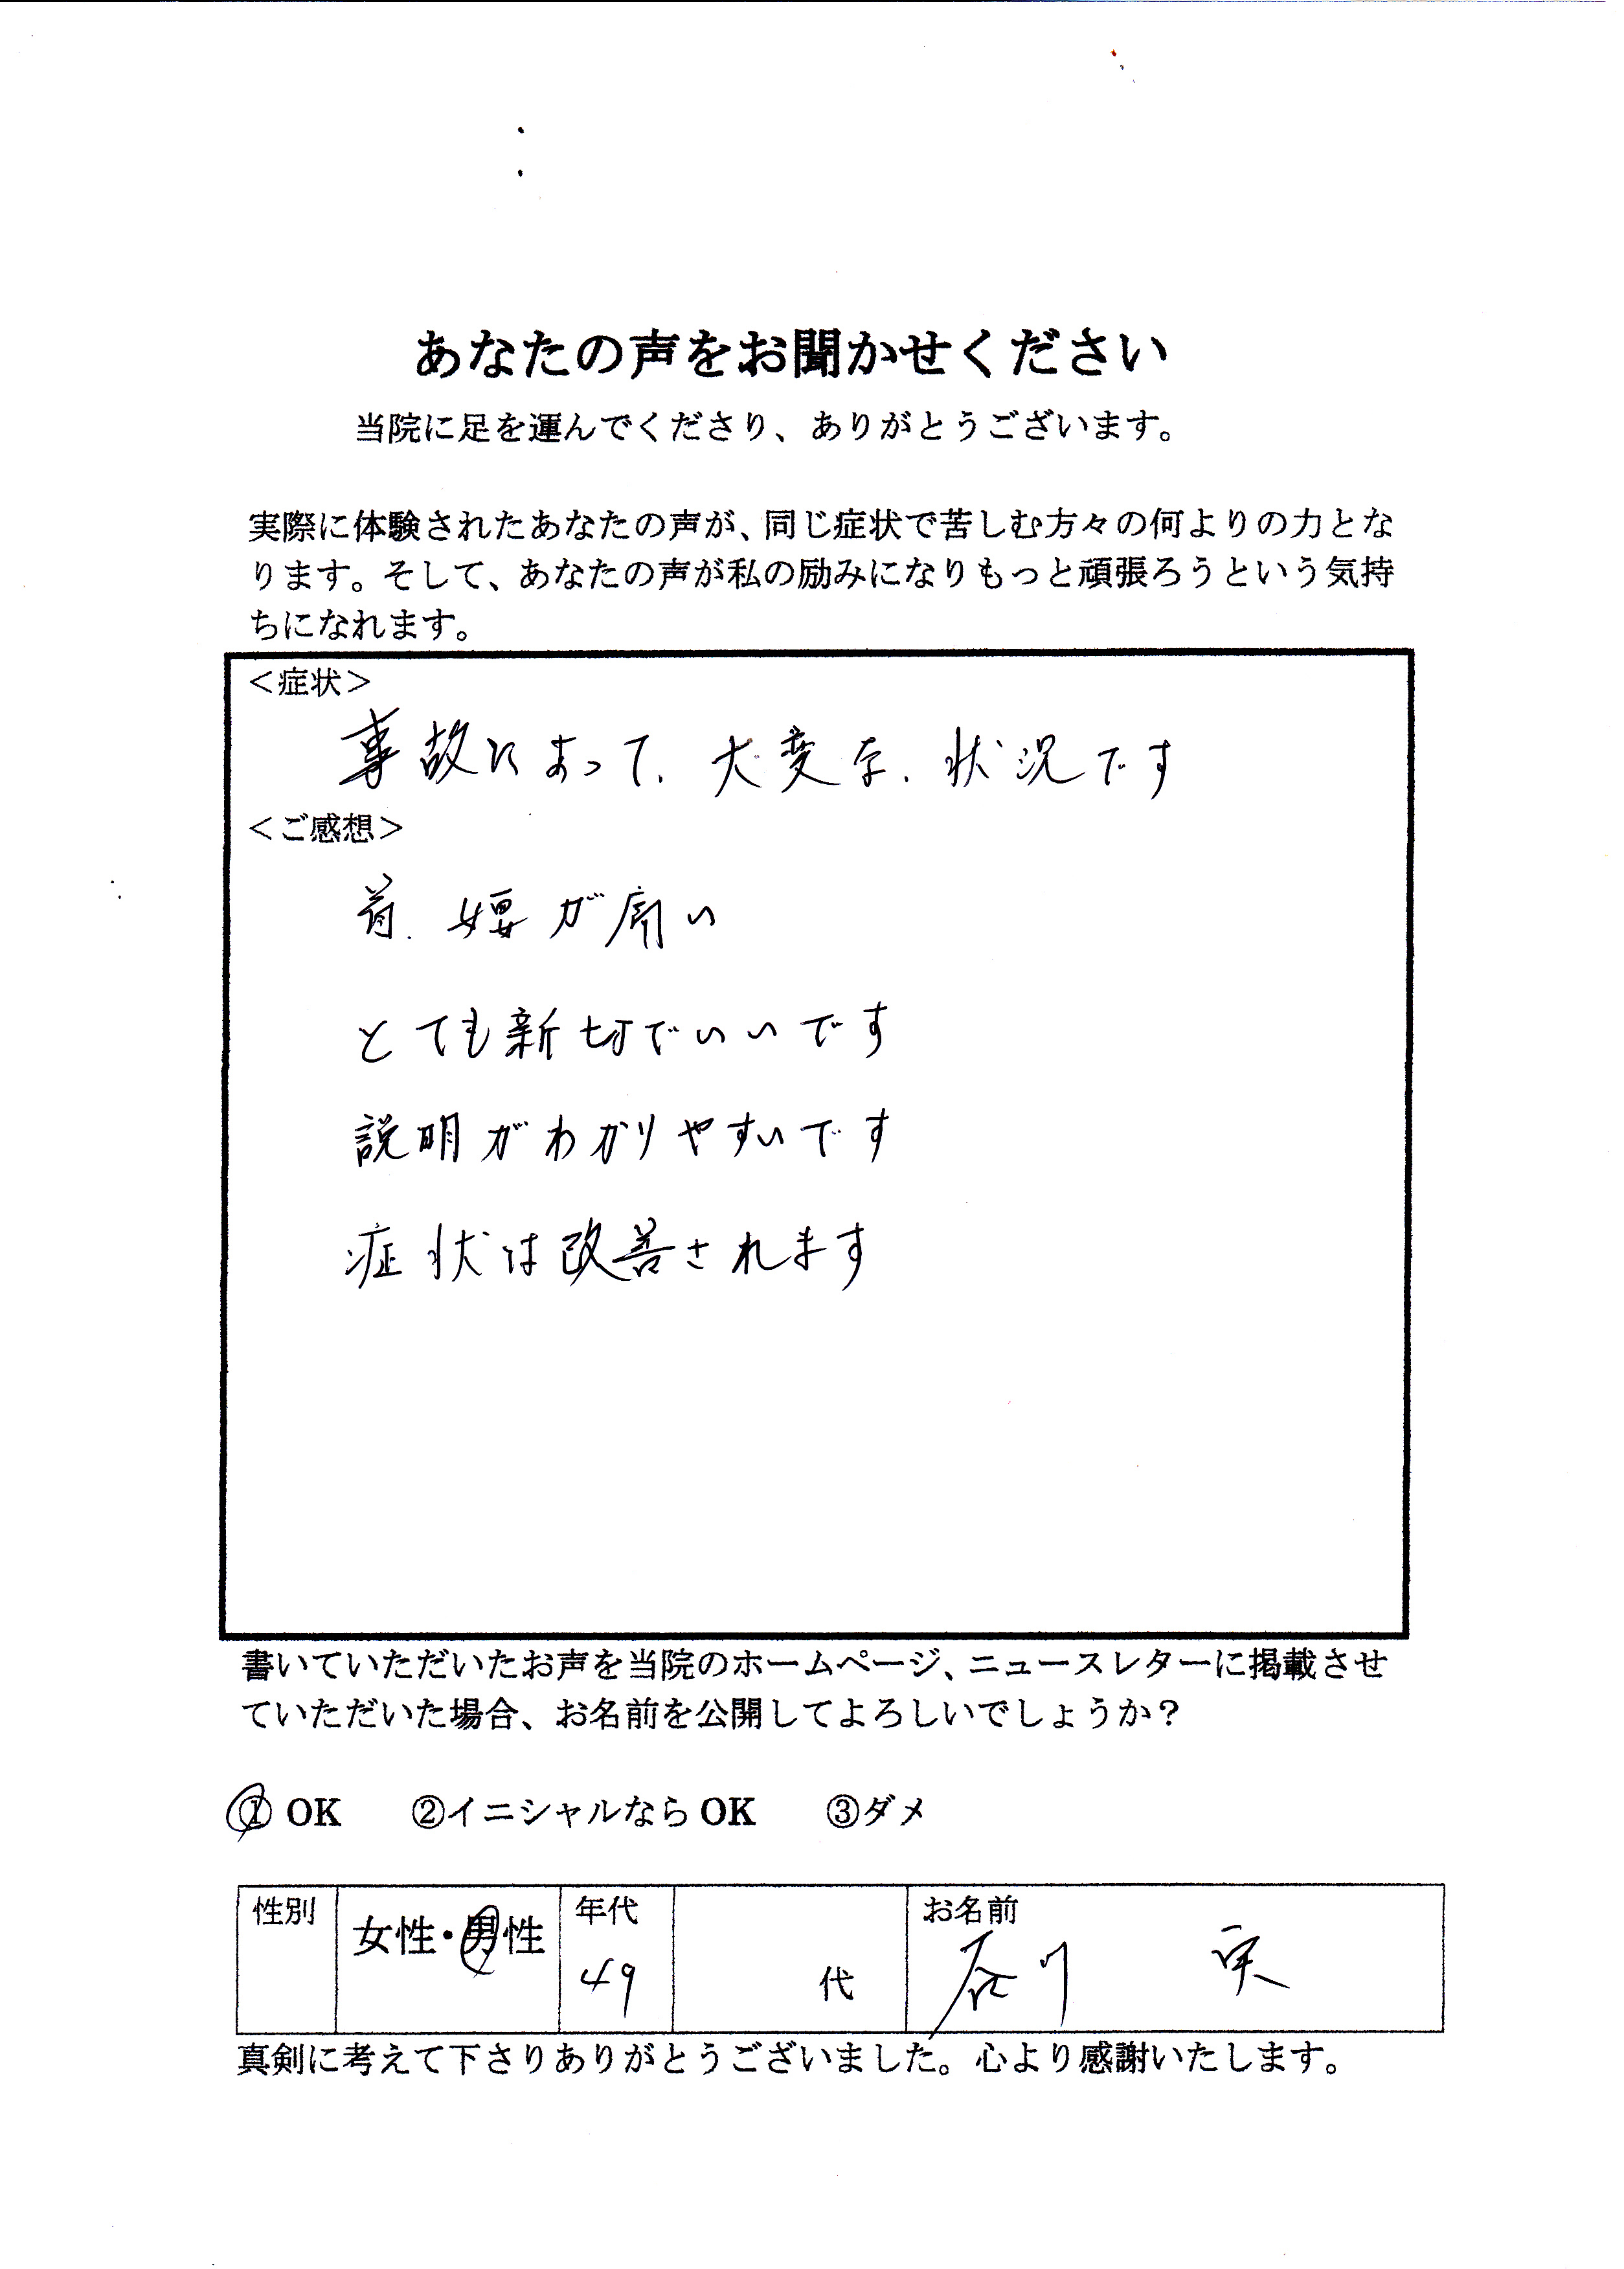 あなたの声をお聞かせください
当院に足を運んでくださり、ありがとうございます。
実際に体験されたあなたの声が、同じ症状で苦しむ方々の何よりの力とな
ります。そして、あなたの声が私の励みになりもっと頑張ろうという気持
ちになれます。
＜症状＞
事故にあって、大変な、状況です
＜ご感想＞
首、腰が痛い
とても新切でいいです
説明がわかりやすいです
症状は改善されます
書いていただいたお声を当院のホームページ、ニュースレターに掲載させ
ていただいた場合、お名前を公開してよろしいでしょうか？
① OK ②イニシャルならOK ③ダメ
性別 女性・男性 年代 49 代 お名前 谷川 実
真剣に考えて下さりありがとうございました。心より感謝いたします。